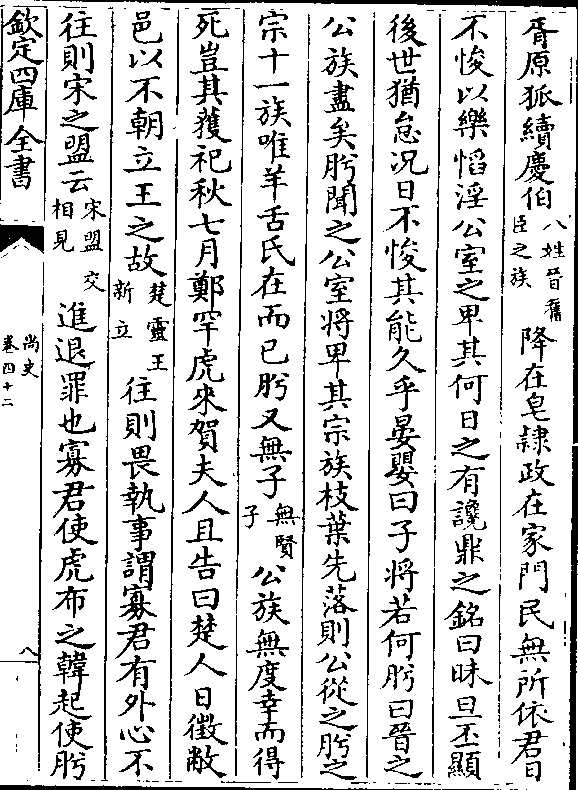 胥原狐續慶伯八姓晉舊臣之族降在皂隸政在家門民無所依君日
不悛以樂慆淫公室之卑其何日之有讒鼎之銘曰昧旦丕顯
後世猶怠況日不悛其能久乎晏嬰曰子將若何肹曰晉之
公族盡矣肹聞之公室將卑其宗族枝葉先落則公從之肹之
宗十一族唯羊舌氏在而已肹又無子無賢子公族無度幸而得
死豈其獲祀秋七月鄭罕虎來賀夫人且告曰楚人日徵敝
邑以不朝立王之故楚靈王新立往則畏執事謂寡君有外心不
往則宋之盟云宋盟交相見進退罪也寡君使虎布之韓起使肹
欽定四庫全書
尚史
卷四十二
八